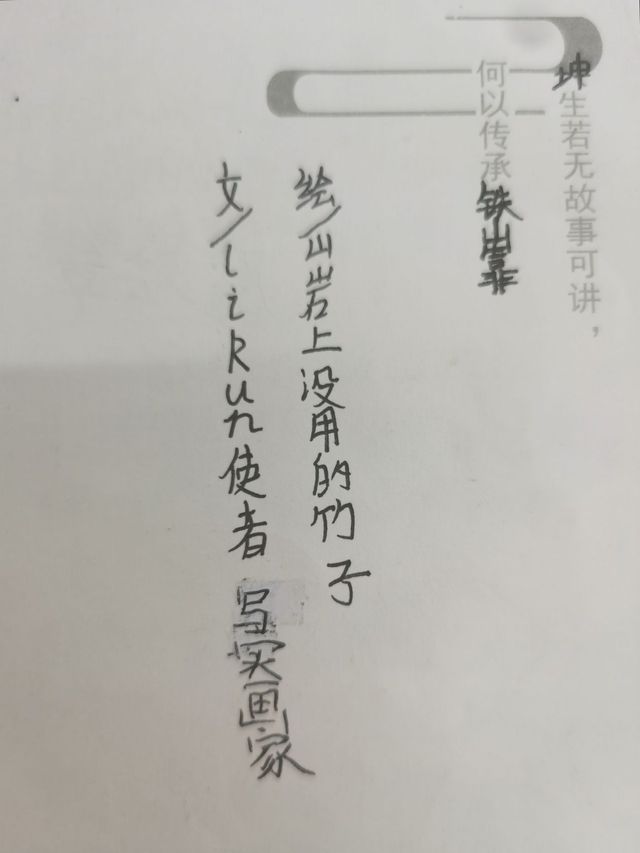 坤生若无故事可讲，
何以传承铁山靠
绘/山岩上没用的竹子
文/likun使者 写实画家